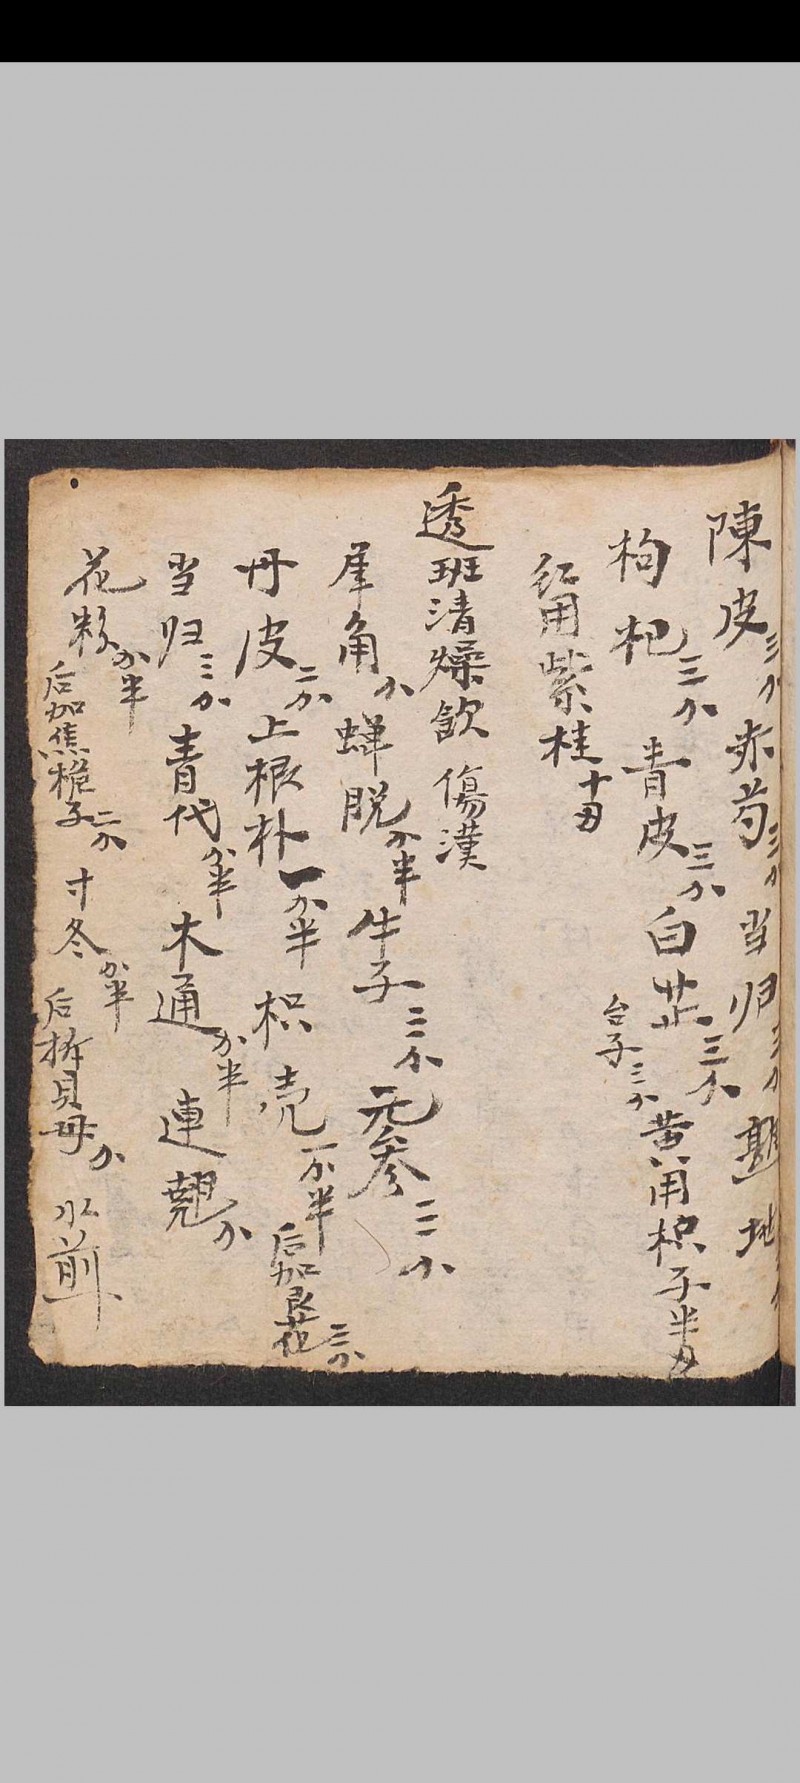 陳皮三分赤芍三分当归三分熟地
枸杞三分青皮三分白芷三分黄用枳子半刄
台子三分
紅用紫桂十刄
透班清燥飲 傷漢
犀角分蝉脱分半牛子三分元参三分
丹皮二分上根朴一分半枳壳一分半后加艮花三分
当归三分青代分半木通分半連翹分
花粉分半后加焦梔子二分寸冬分半后拆貝母分水前